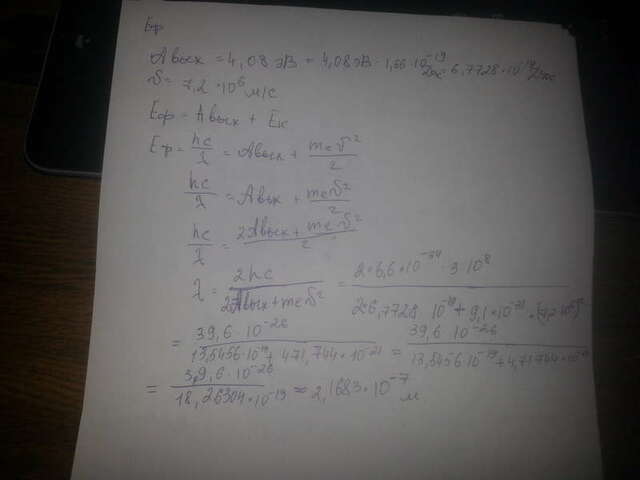 Eф
Aвых = 4,08 эВ = 4,08 эВ · 1,66 · 10⁻¹⁹ Дж = 6,7728 · 10⁻¹⁹ Дж
υ = 7,2 · 10⁶ м/с
Eф = Aвых + Eк
Eф = hc/λ = Aвых + meυ²/2
hc/λ = Aвых + meυ²/2
hc/λ = 2Aвых + meυ²/2
λ = 2hc/2Aвых + meυ² = 2 · 6,6 · 10⁻³⁴ · 3 · 10⁸/2 · 6,7728 · 10⁻¹⁹ + 9,1 · 10⁻³¹ ·
= 39,6 · 10⁻²⁶/13,5456 · 10⁻¹⁹ + 471,744 · 10⁻²¹ = 39,6 · 10⁻²⁶/13,5456 · 10⁻¹⁹ + 4,71744 · 10⁻¹⁹
= 3,9,6 · 10⁻²⁶/18,26304 · 10⁻¹⁹ ≈ 2,1683 · 10⁻⁷ м